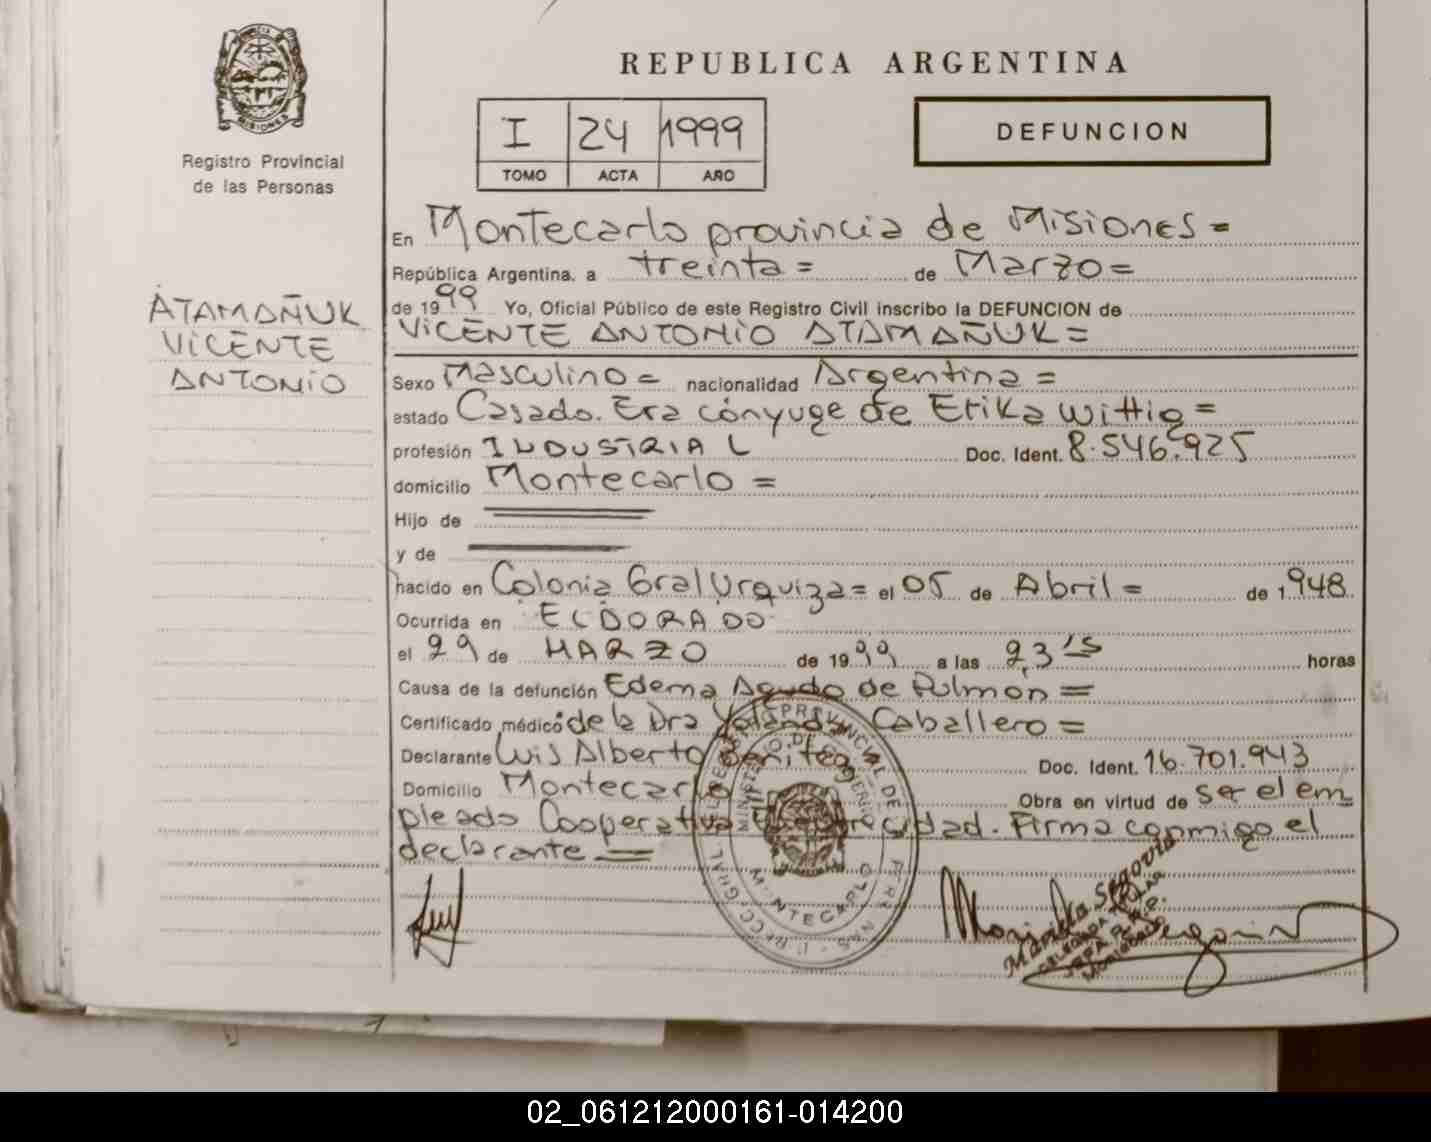 MISIONES
Registro Provincial
de las Personas
REPUBLICA ARGENTINA
I 24 1999
TOMO ACTA AÑO
DEFUNCION
En Montecarlo provincia de Misiones =
República Argentina. a treinta = de Marzo =
de 1999 Yo, Oficial Público de este Registro Civil inscribo la DEFUNCION de
VICENTE ANTONIO ATAMAÑUK =
ATAMAÑUK
VICENTE
ANTONIO
Sexo Masculino = nacionalidad Argentina =
estado Casado. Era cónyuge de Erika Wittig =
profesión INDUSTRIAL Doc. Ident. 8.546.925
domicilio Montecarlo =
Hijo de
y de
nacido en Colonia Gral Urquiza = el 05 de Abril = de 1.948
Ocurrida en ELDORADO
el 29 de MARZO de 1999 a las 2,315 horas
Causa de la defunción Edema Agudo de Pulmón =
Certificado médico: de la Dra Yolanda Caballero =
Declarante Luis Alberto Benitez Doc. Ident. 16.701.943
Domicilio Montecarlo Obra en virtud de ser el em
pleado Cooperativa Electricidad. Firma conmigo el
declarante =
MONTECARLO
Marinka Segovia
02_061212000161-014200